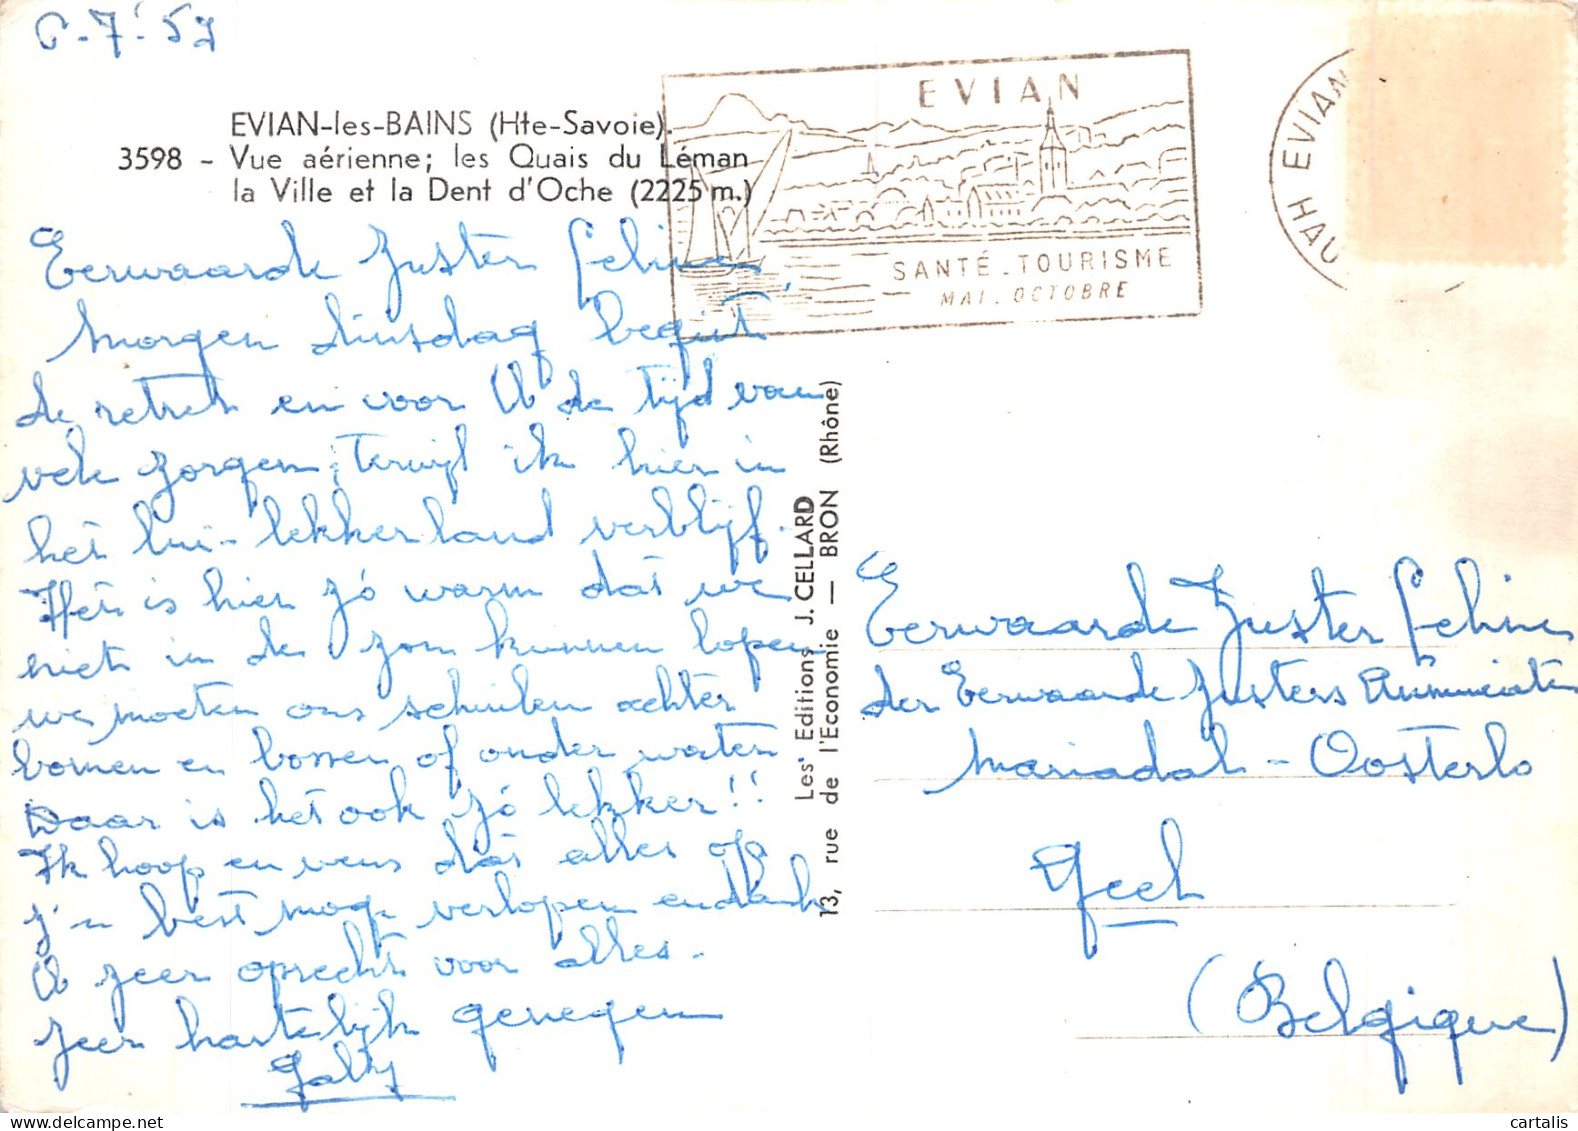 6-7-57
EVIAN-les-BAINS (Hte-Savoie).
3598 - Vue aérienne; les Quais du Léman
la Ville et la Dent d'Oche (2225 m.)
EVIAN
SANTÉ_TOURISME
MAI_OCTOBRE
EVIAN
HAU
Eerwaarde Zuster Celine
Morgen dinsdag begint
de retret en voor U de tijd van
vele zorgen; Terwijl ik hier in
het lui-lekkerland verblijf.
Het is hier zó warm dat we
niet in de zon kunnen lopen
we moeten ons schuilen achter
bomen en bossen of onder water
Daar is het ook zó lekker!!
Ik hoop en wens dat alles op
z'n best mag verlopen en dank
U zeer oprecht voor alles.
Zeer hartelijk genegen
Gaby
Les Editions J. CELLARD
13, rue de l'Economie — BRON (Rhône)
Eerwaarde Zuster Celine
der Eerwaarde Zusters Annunciaten
Mariadal - Oosterlo
Geel
(Belgique)
cartalis
www.delcampe.net